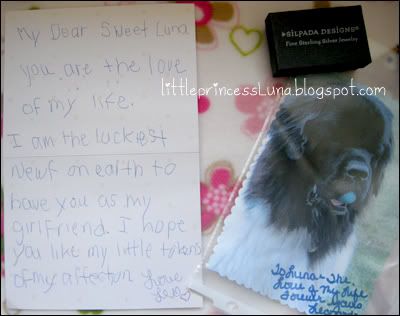 My Dear Sweet Luna
you are the love
of my life.
I am the luckiest
Newf on earth to
have you as my
girlfriend. I hope
you like my little tokens
of my affection Love
Leo
SILPADA DESIGNS
Fine Sterling Silver Jewelry
littleprincessLuna.blogspot.com
To Luna-The
Love of My Life
Forever Yours